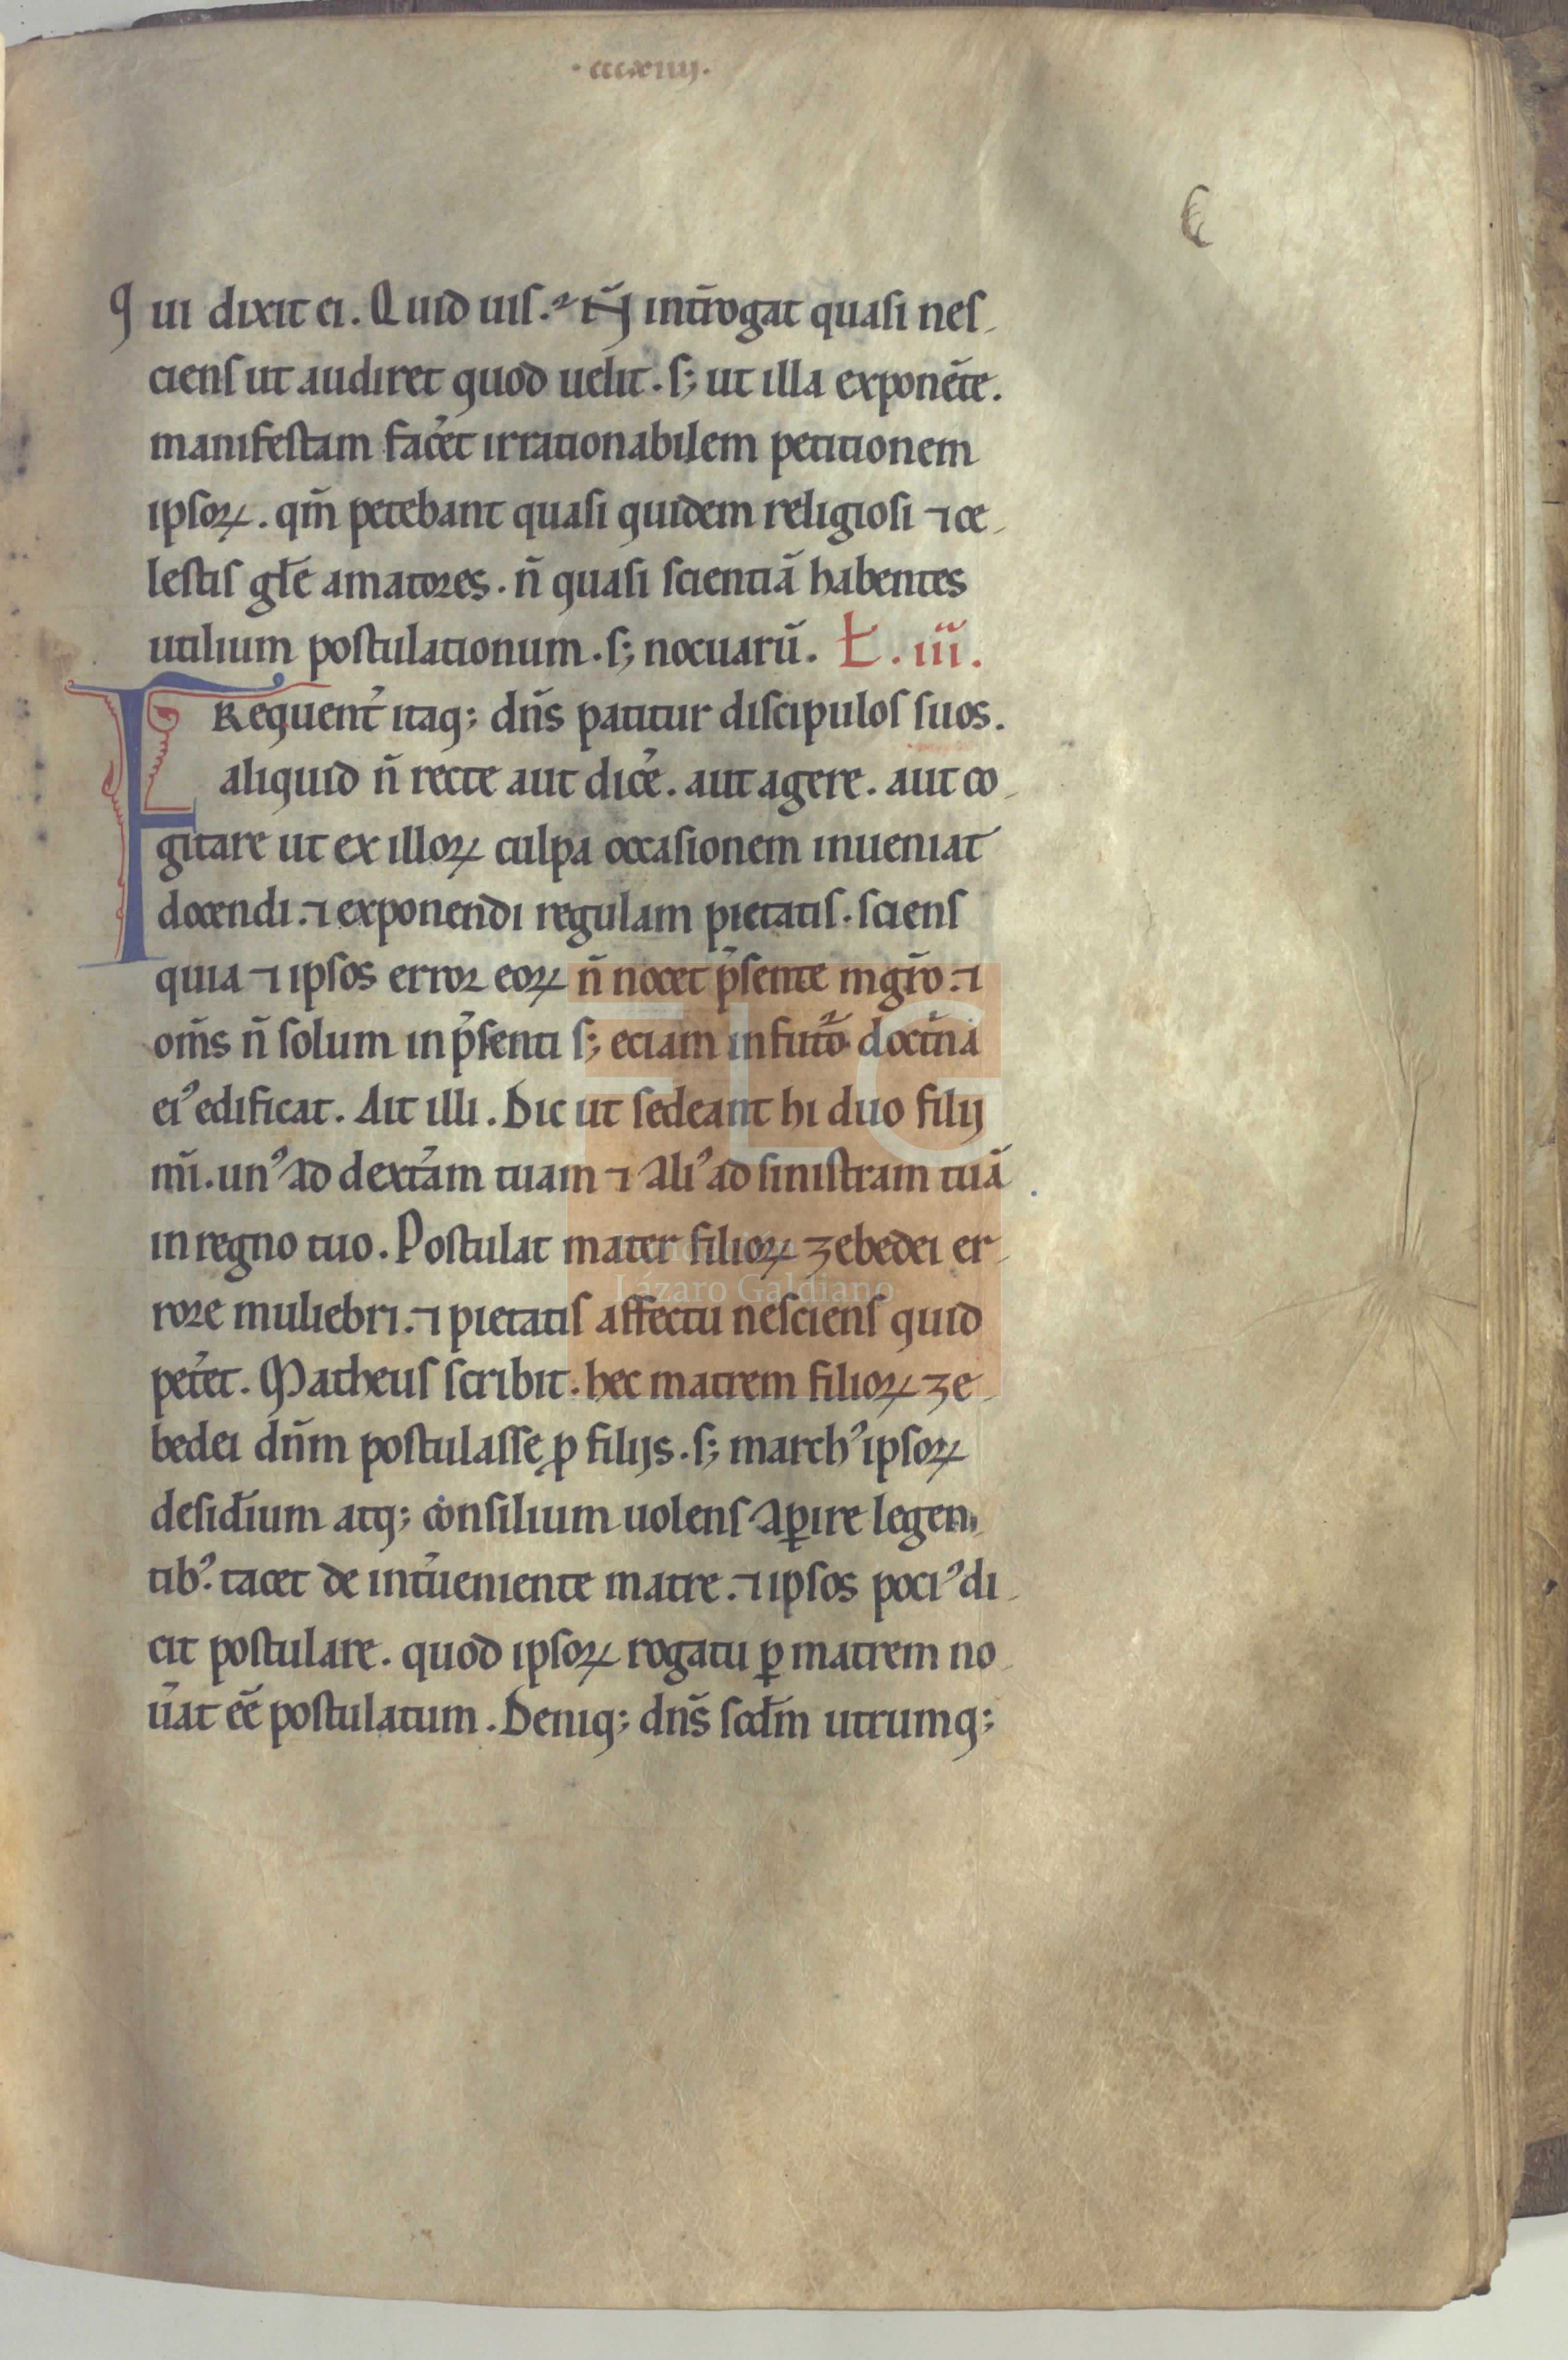 ·cccxiiij·
Qui dixit ei. Quid uis. Nõ int̃rogat quasi nes-
ciens ut audiret quod uelit. s; ut illa exponẽte.
manifestam fac̃et irrationabilem petitionem
ipsoꝝ. qm̃ petebant quasi quidem religiosi ⁊ ce-
lestis gl̃e amatores. ñ quasi scientiã habentes
utilium postulationum. s; nocuarũ. Ł. iii.
FRequent̃ itaq; dñs patitur discipulos suos.
aliquid ñ recte aut dic̃e. aut agere. aut co-
gitare ut ex illoꝝ culpa occasionem inueniat
docendi. ⁊ exponendi regulam pietatis. sciens
quia ⁊ ipsos error eoꝝ ñ nocet p̃sente mgr̃o. ⁊
om̃s ñ solum in p̃senti s; eciam in futo doct̃na
ei⁹ edificat. Ait illi. Dic ut sedeant hi duo filij
mĩ. un⁹ ad dext̃am tuam ⁊ ali⁹ ad sinistram tuã
in regno tuo. Postulat mater filioꝝ zebedei er-
rore muliebri. ⁊ pietatis affectu nesciens quid
pet̃et. Matheus scribit. hec matrem filioꝝ ze-
bedei dñm postulasse ꝓ filijs. s; march⁹ ipsoꝝ
desid̃ium atq; consilium uolens aꝑire legen-
tib⁹. tacet de int̃ueniente matre. ⁊ ipsos poci⁹ di-
cit postulare. quod ipsoꝝ rogatu ꝑ matrem no-
ũat eẽ postulatum. Deniq; dñs scd̃m utrumq;
Lázaro Galdiano